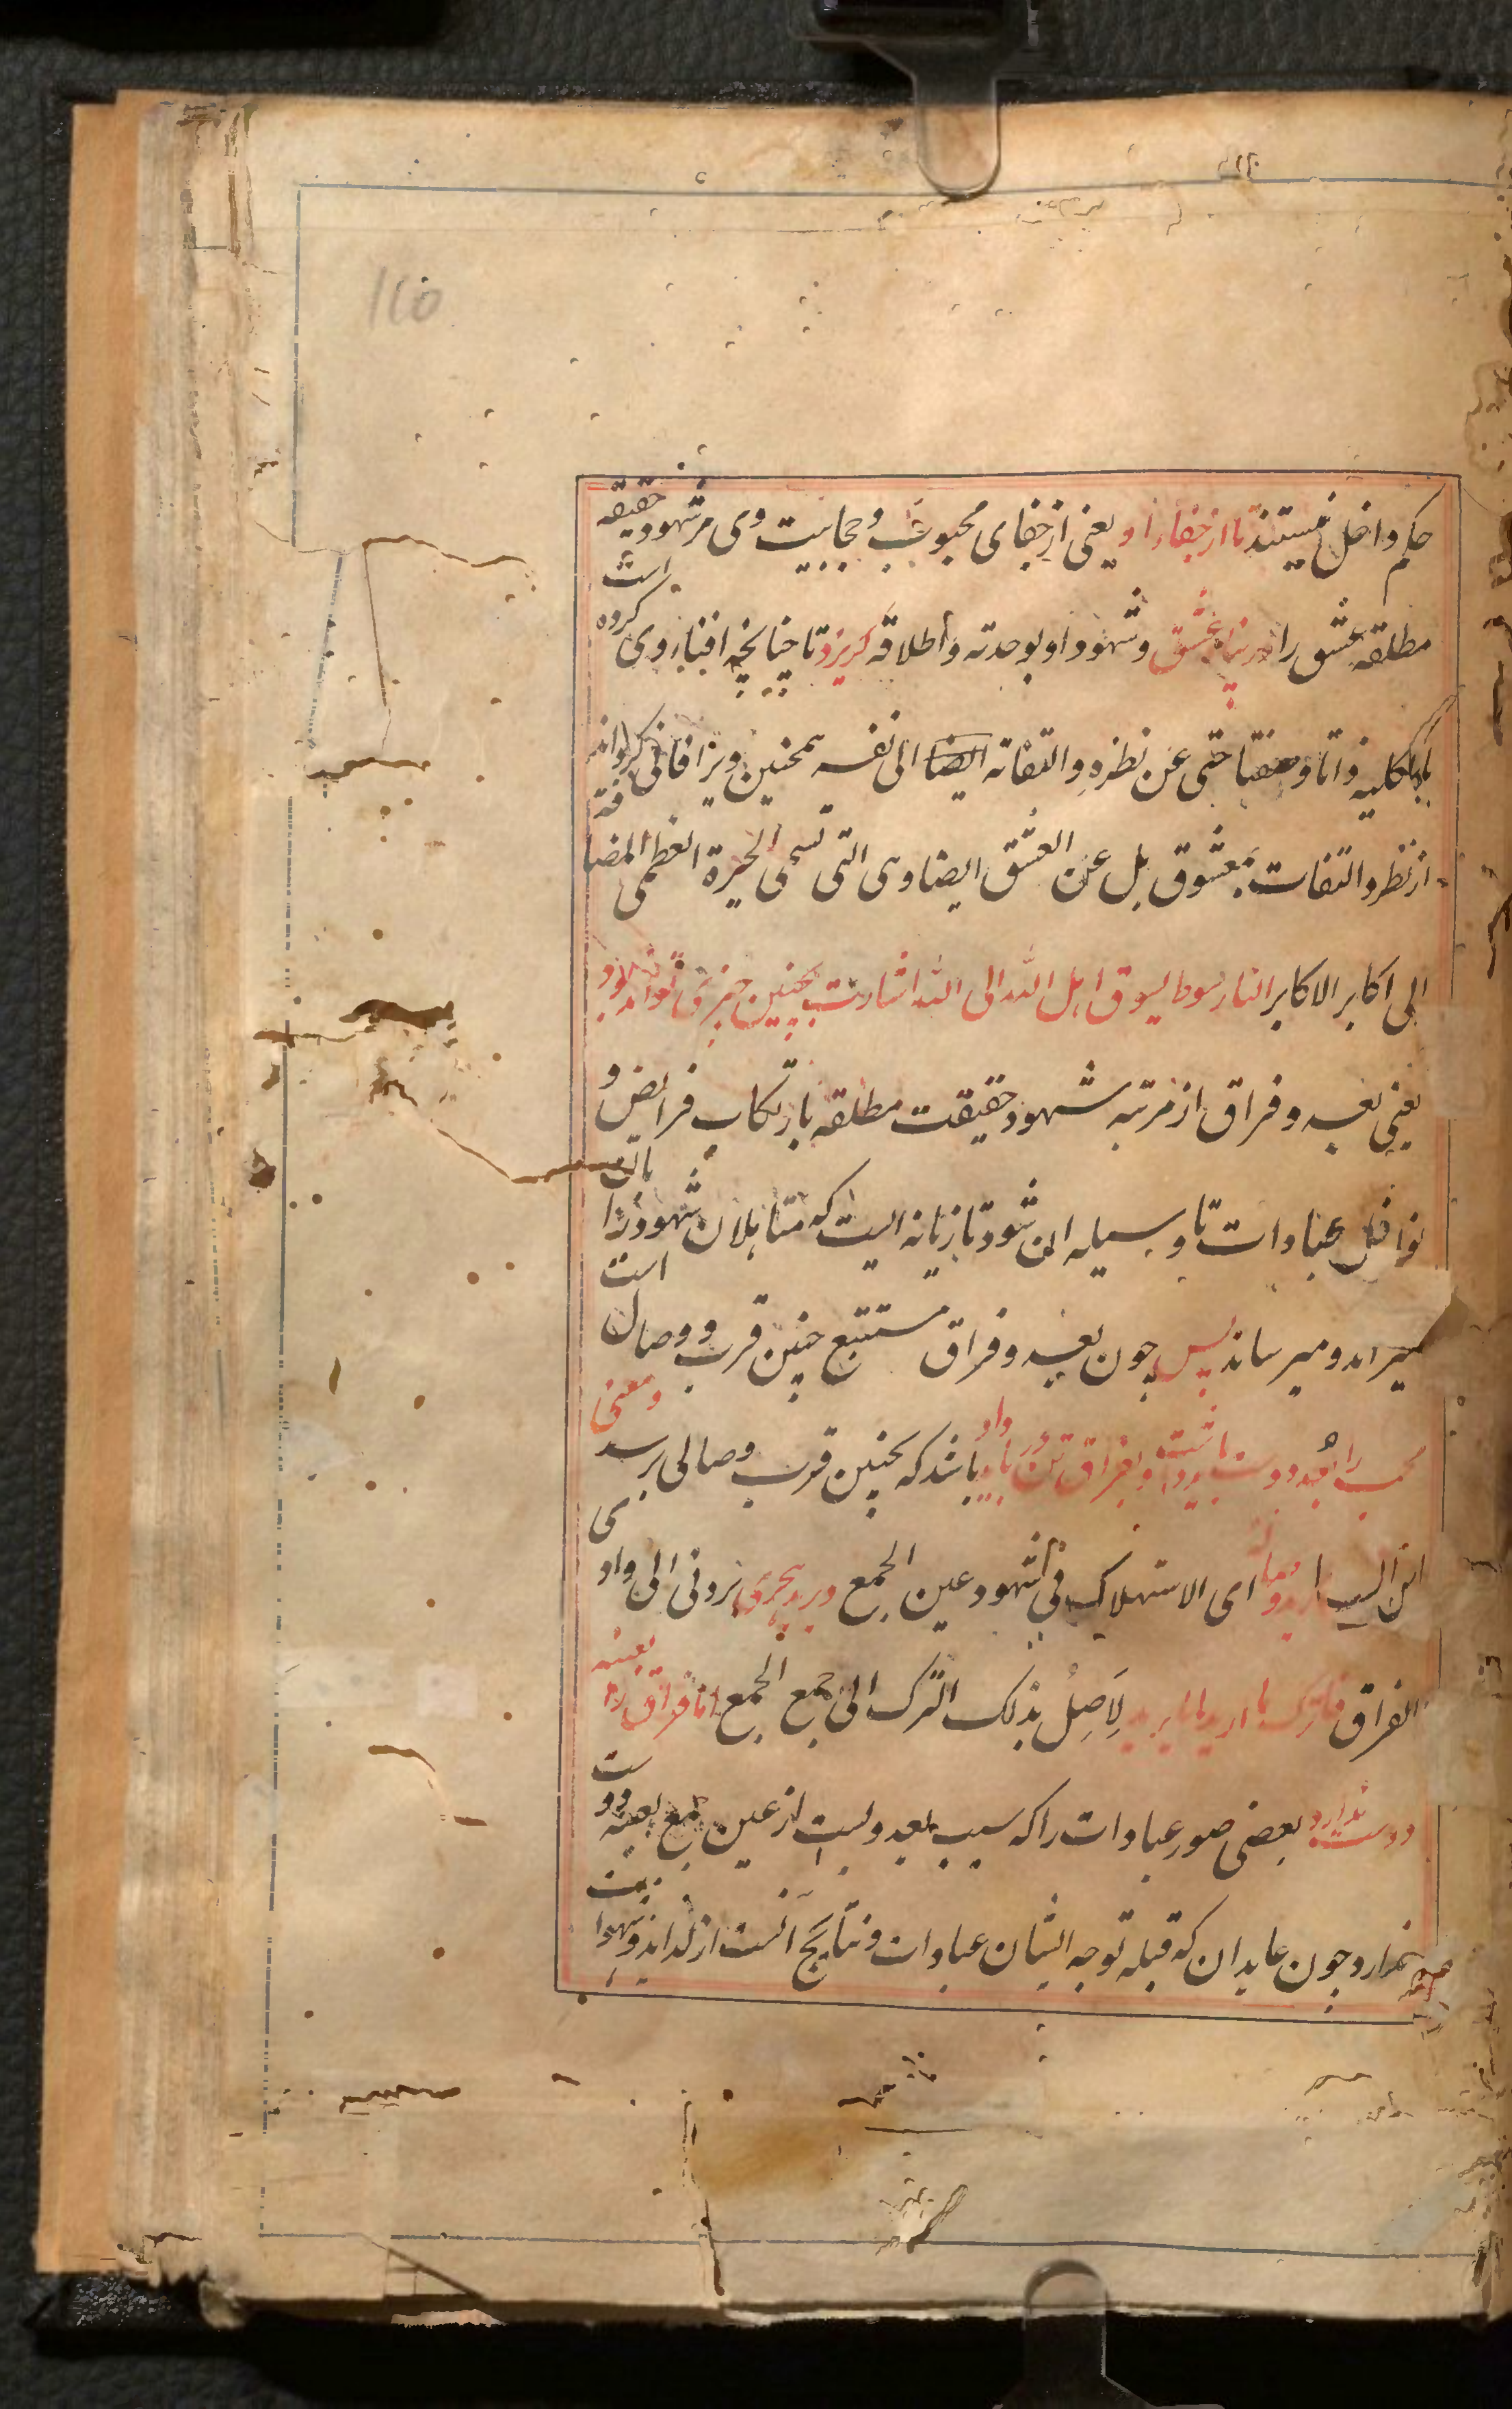 110
حکم داخل نیستند تا از جفاء او یعنی از جفای محبوب و حجابیت وی مر شهود حقیقه
مطلقه عشق را در پناه عشق و شهود او بوحدته و اطلاقه گریزد تا چنانچه افناء وی کرده است
بالکلیه ذاتا و صفتا حتی عن نظره و التفاته ایضا الی نفسه همچنین ویرا فانی گرداند
از نظر و التفات بمعشوق بل عن العشق ایضا وهی التی تسمی الحیرة العظمی المضافة
الی اکابر الاکابر النار سوط یسوق اهل الله الی الله اشارت بچنین چیزی تواند بود
یعنی بعد و فراق از مرتبه شهود حقیقت مطلقه بارتکاب فرایض و
نوافل عبادات تا وسیله آن شود تازیانه ایست که متاهلان شهود را بآن
میراند و میرساند پس چون بعد و فراق مستتبع چنین قرب و وصال است
محب را بعد دوست باید داشت و بفراق تن در باید داد باشد که بچنین قرب و وصالی برسد و معنی
ارید وصاله ای الاستهلاک فی شهود عین الجمع ویرید هجری نزولی الی وادی
الفراق فاترک ما ارید لما یرید لِاَصِلُ بذلک الترک الی جمع الجمع اما فراق را بعینه
دوست ندارد بعضی صور عبادات را که سبب بعد ولیست از عین جمع بعینه دوست
ندارد چون عابدان که قبله توجه ایشان عبادات و نتایج آنست از لذاید و شهوات